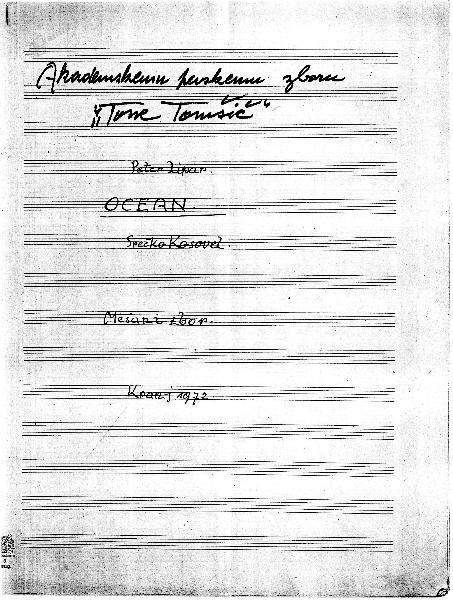 Akademskemu pevskemu zboru
„Tone Tomšič“
Peter Lipar.
OCEAN
Srečko Kosovel.
Mešani zbor.
Kranj 1972